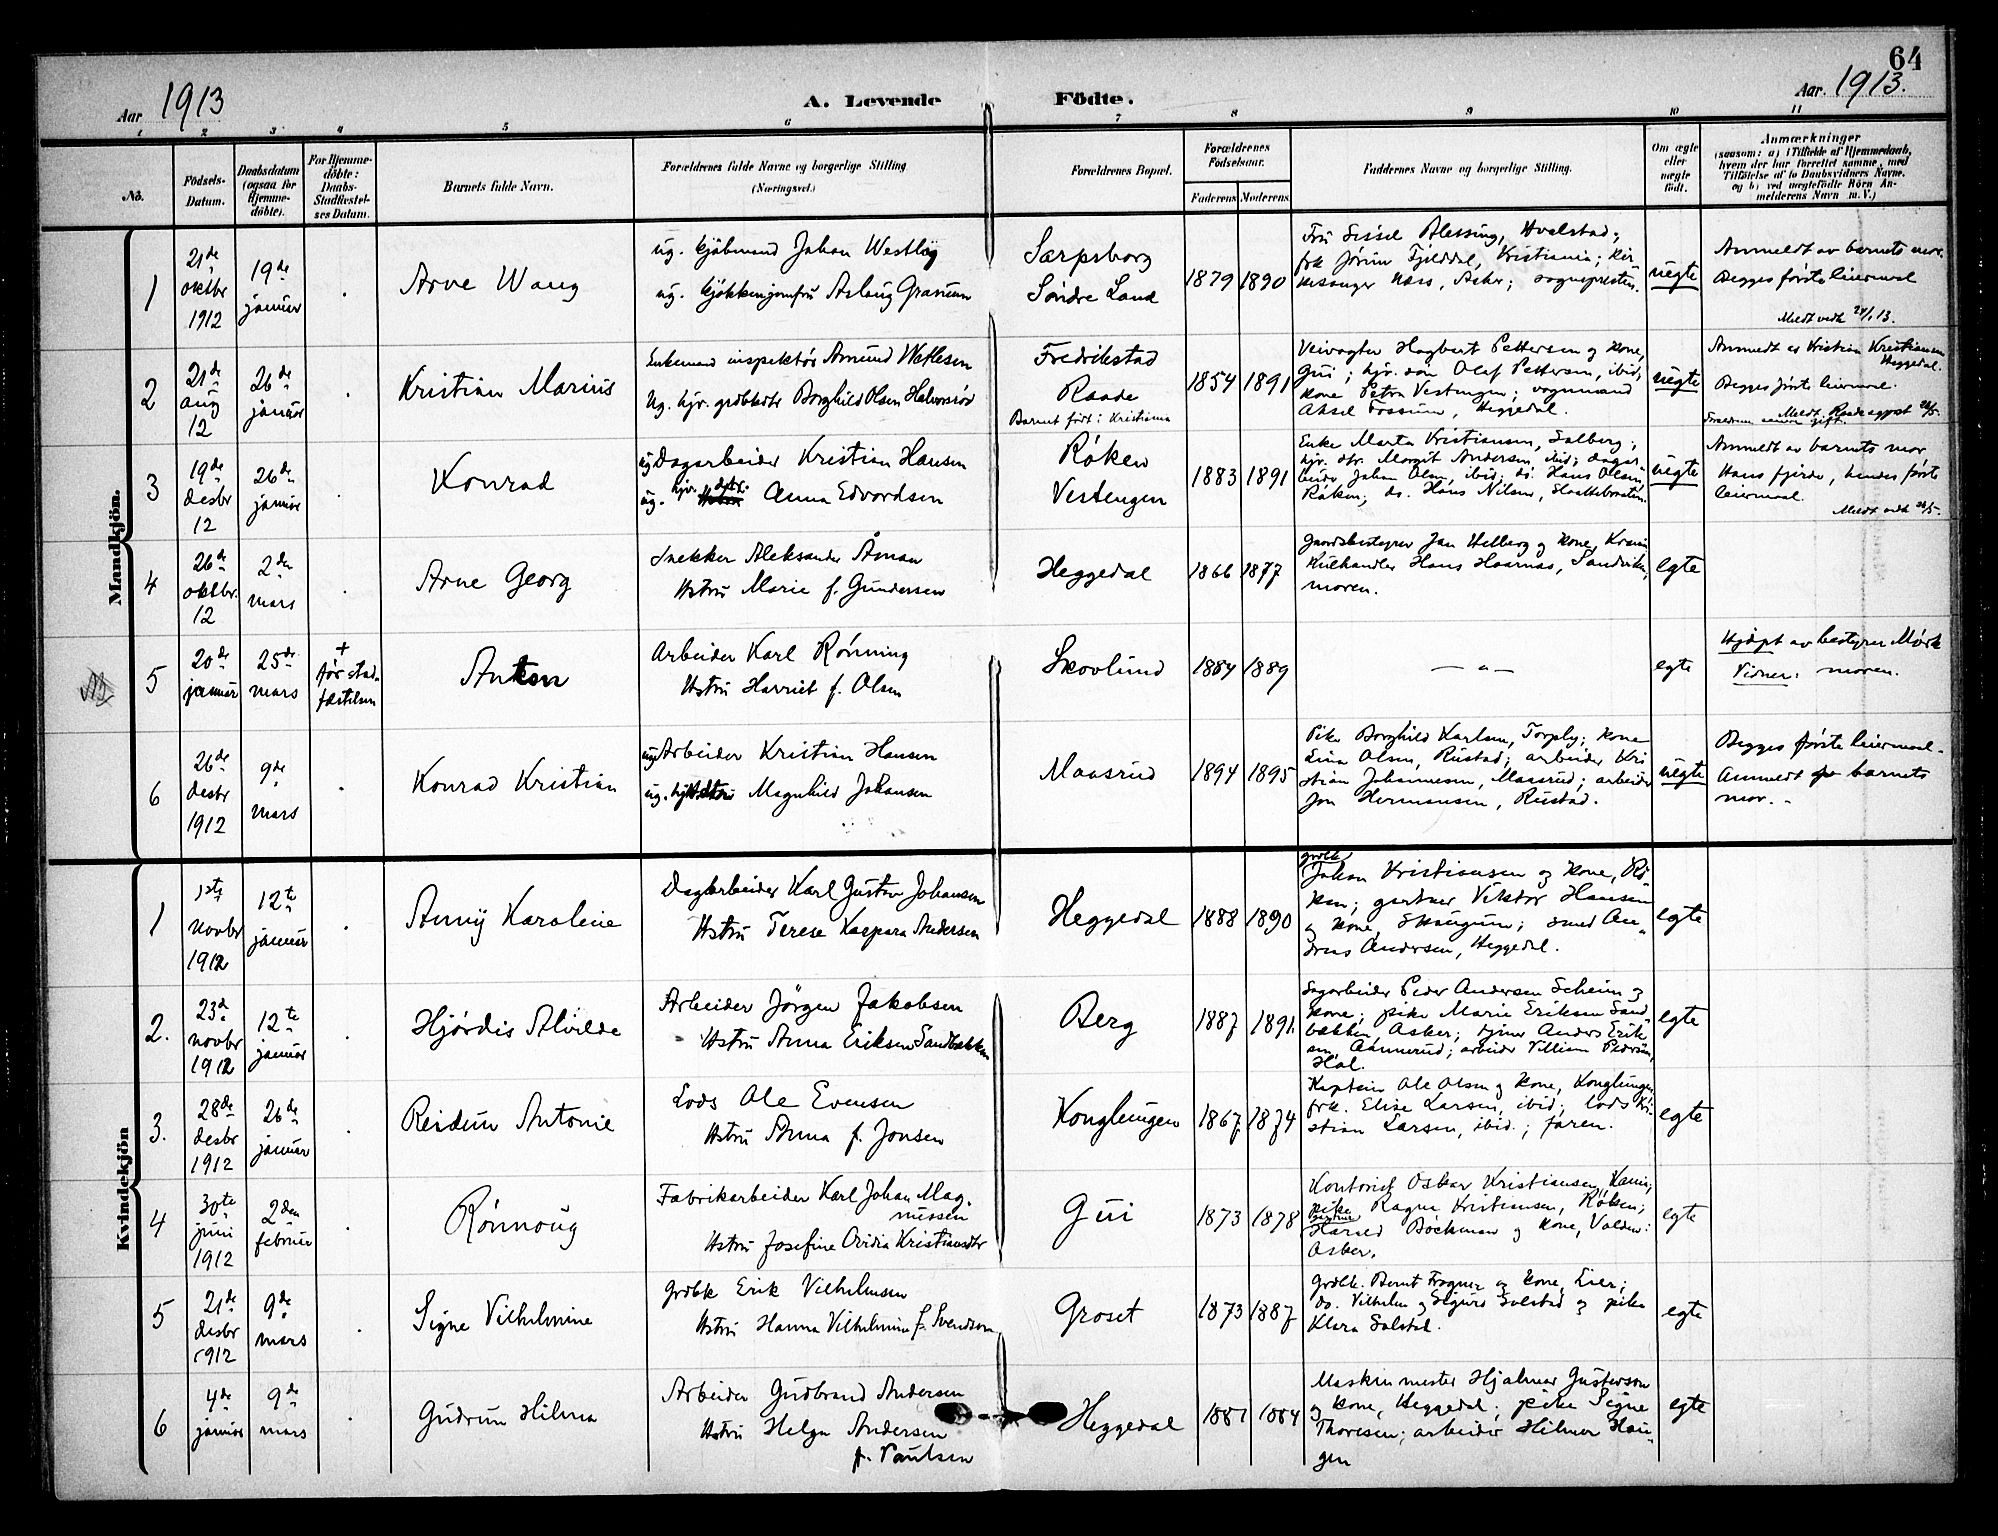 64
Aar 1913
A. Levende
Födte.
Aar. 1913.
1 2 3 4 5 6 7 8 9 10 11
No.
Födsels-
Datum.
Daabsdatum
(ogsaa for
Hjemme-
döbte).
For Hjemme-
döbte:
Daabs-
Stadfæstel-
ses Datum.
Barnets fulde Navn.
Forældrenes fulde Navne og borgerlige Stilling
(Næringsvei.)
Forældrenes Bopæl.
Forældrenes
Födselsaar.
Faderens
Moderens
Faddernes Navne og borgerlige Stilling.
Om ægte
eller
uægte
födt.
Anmærkninger
(saasom: a) i Tilfælde af Hjemmedaab,
hvem der har forrettet samme, med
Tilföielse af to Daabsvidners Navne.
og b) ved uægtefödte Börn An-
melderens Navn m. V.)
Mandkjön.
1
21de
oktbr
1912
19de
januar
Arve Wang
ug. kjøbmand Johan Westby
ug. kjøkkenjomfru Aslaug Gravum
Sarpsborg
Søndre Land
1879
1890
Fru Sissel Blessing, Hvalstad;
frk Jørun Fjelddal, Kristiania; kir-
kesanger Næss, Asker; sognepresten.
uegte
Anmeldt av barnets mor.
Begges første leiermaal
Meldt vedk 24/1 13.
2
21de
aug
12
26de
januar
Kristian Marius
Enkemand inspektør Amund Wetlesen
Ug. hjv. grdbkdtr Borghild Olsen Halvorsrød
Fredrikstad
Raade
Barnet født i Kristiania
1854
1891
Veivogter Hagbert Pettersen og kone,
Gui; hjv. søn Olaf Pettersen, ibid;
kone Petra Vestengen; vognmand
Aksel Fossum, Heggedal.
uegte
Anmeldt av Kristian Kristiansen
Heggedal.
Begges første leiermaal.
Meldt Raade sgpst 24/5.
3
19de
desbr
12
26de
januar
Konrad
ug Dagarbeider Kristian Hansen
ug. hjv. dtr. Anna Edvardsen
Røken
Vestengen
1883
1891
Enke Marta Kristiansen, Solberg;
hjv. dtr. Margit Andersen, ibid; dagar-
beider Johan Olsen, ibid; do. Hans Olsen,
Røken; do. Hans Nilsen, Slottebraaten.
uegte
Anmeldt av barnets mor
Hans fjerde, hendes første
leiermaal.
Meldt vedk 24/5.
4
26de
oktbr.
12
2den
mars
Arne Georg
Snekker Aleksander Åman
Hstru Marie f. Gundersen
Heggedal
1866
1877
Gaardsbestyrer Jan Helberg og kone,
Kulhandler Hans Haarnæs, Sandviken,
moren.
egte
5
20de
januar
25de
mars
+
før stad-
fæstelsen
Anton
Arbeider Karl Rønning
Hstru Harriet f. Olsen
Skovlund
1884
1889
— „ —
egte
Hjdøpt av bestyrer Mørk
Vidner: moren.
6
26de
desbr
1912
9de
mars
Konrad Kristian
ug Arbeider Kristian Hansen
ug. Magnhild Johansen
Maasrud
1894
1895
Pike Borghild Karlsen, Torply; kone
Lina Olsen, Rustad; arbeider Kri
stian Johannesen, Maasrud; arbeider
Jon Hermansen, Rustad.
uegte
Begges første leiermaal.
Anmeldt av barnets
mor.
Kvindekjön
1
1ste
novbr
1912
12te
januar
Anny Karoline
Dagarbeider Karl Gustav Johansen
Hstru Terese Kaspara Andersen
Heggedal
1888
1890
grdbk
Johan Kristiansen og kone, Rø-
ken; gartner Viktor Hansen
og kone, Skaugum; smed An-
dreas Andersen, Heggedal.
egte
2.
23de
novbr
1912
12te
januar
Hjørdis Alvilde
Arbeider Jørgen Jakobsen
Hstru Anna Eriksen Sandbakken
Berg
1887
1891.
Sagarbeider Peder Andersen Scheim og
kone; pike Marie Eriksen Sand-
bakken Asker; tjener Anders Erik-
sen, Aamerud; arbeider Villiam Pedersen,
Hol.
egte
3.
28de
desbr
1912
26de
januar
Reidun Antonie
Lods Ole Evensen
Hstru Anna f. Jonsen
Konglungen
1867
1874
Kaptein Ole Olsen og kone, Konglungen,
frk. Elise Larsen, ibid; lods Kri-
stian Larsen, ibid.; faren.
egte
4
30te
juni
1912
2den
februar
Rønnoug
Fabrikarbeider Karl Johan Mag-
nussen
Hstru Josefine Ovidia Kristiansdtr
Gui
1873
1878
Kontorist Oskar Kristiansen,
pike Ragna Kristiansen, Røken;
Harald Bøckman og kone, Valden i
Asker.
egte
5
21de
desbr
1912
9de
mars
Signe Vilhelmine
Grdbk Erik Vilhelmsen
Hstru Hanna Vilhelmine f. Svendsen
Groset
1873
1887
Grdbk. Bernt Frogner og kone, Lier;
do. Vilhelm og Sigurd Solstad og pike
Klara Solstad.
egte
6
4de
januar
9de
mars
Gudrun Hilma
Arbeider Gudbrand Andersen
Hstru Helga Andersen
f. Paulsen
Heggedal
1881
1884
Maskinmester Hjalmar Gustavson
og kone, Heggedal; pike Signe
Thoresen; arbeider Hilmar Hau-
gen
egte